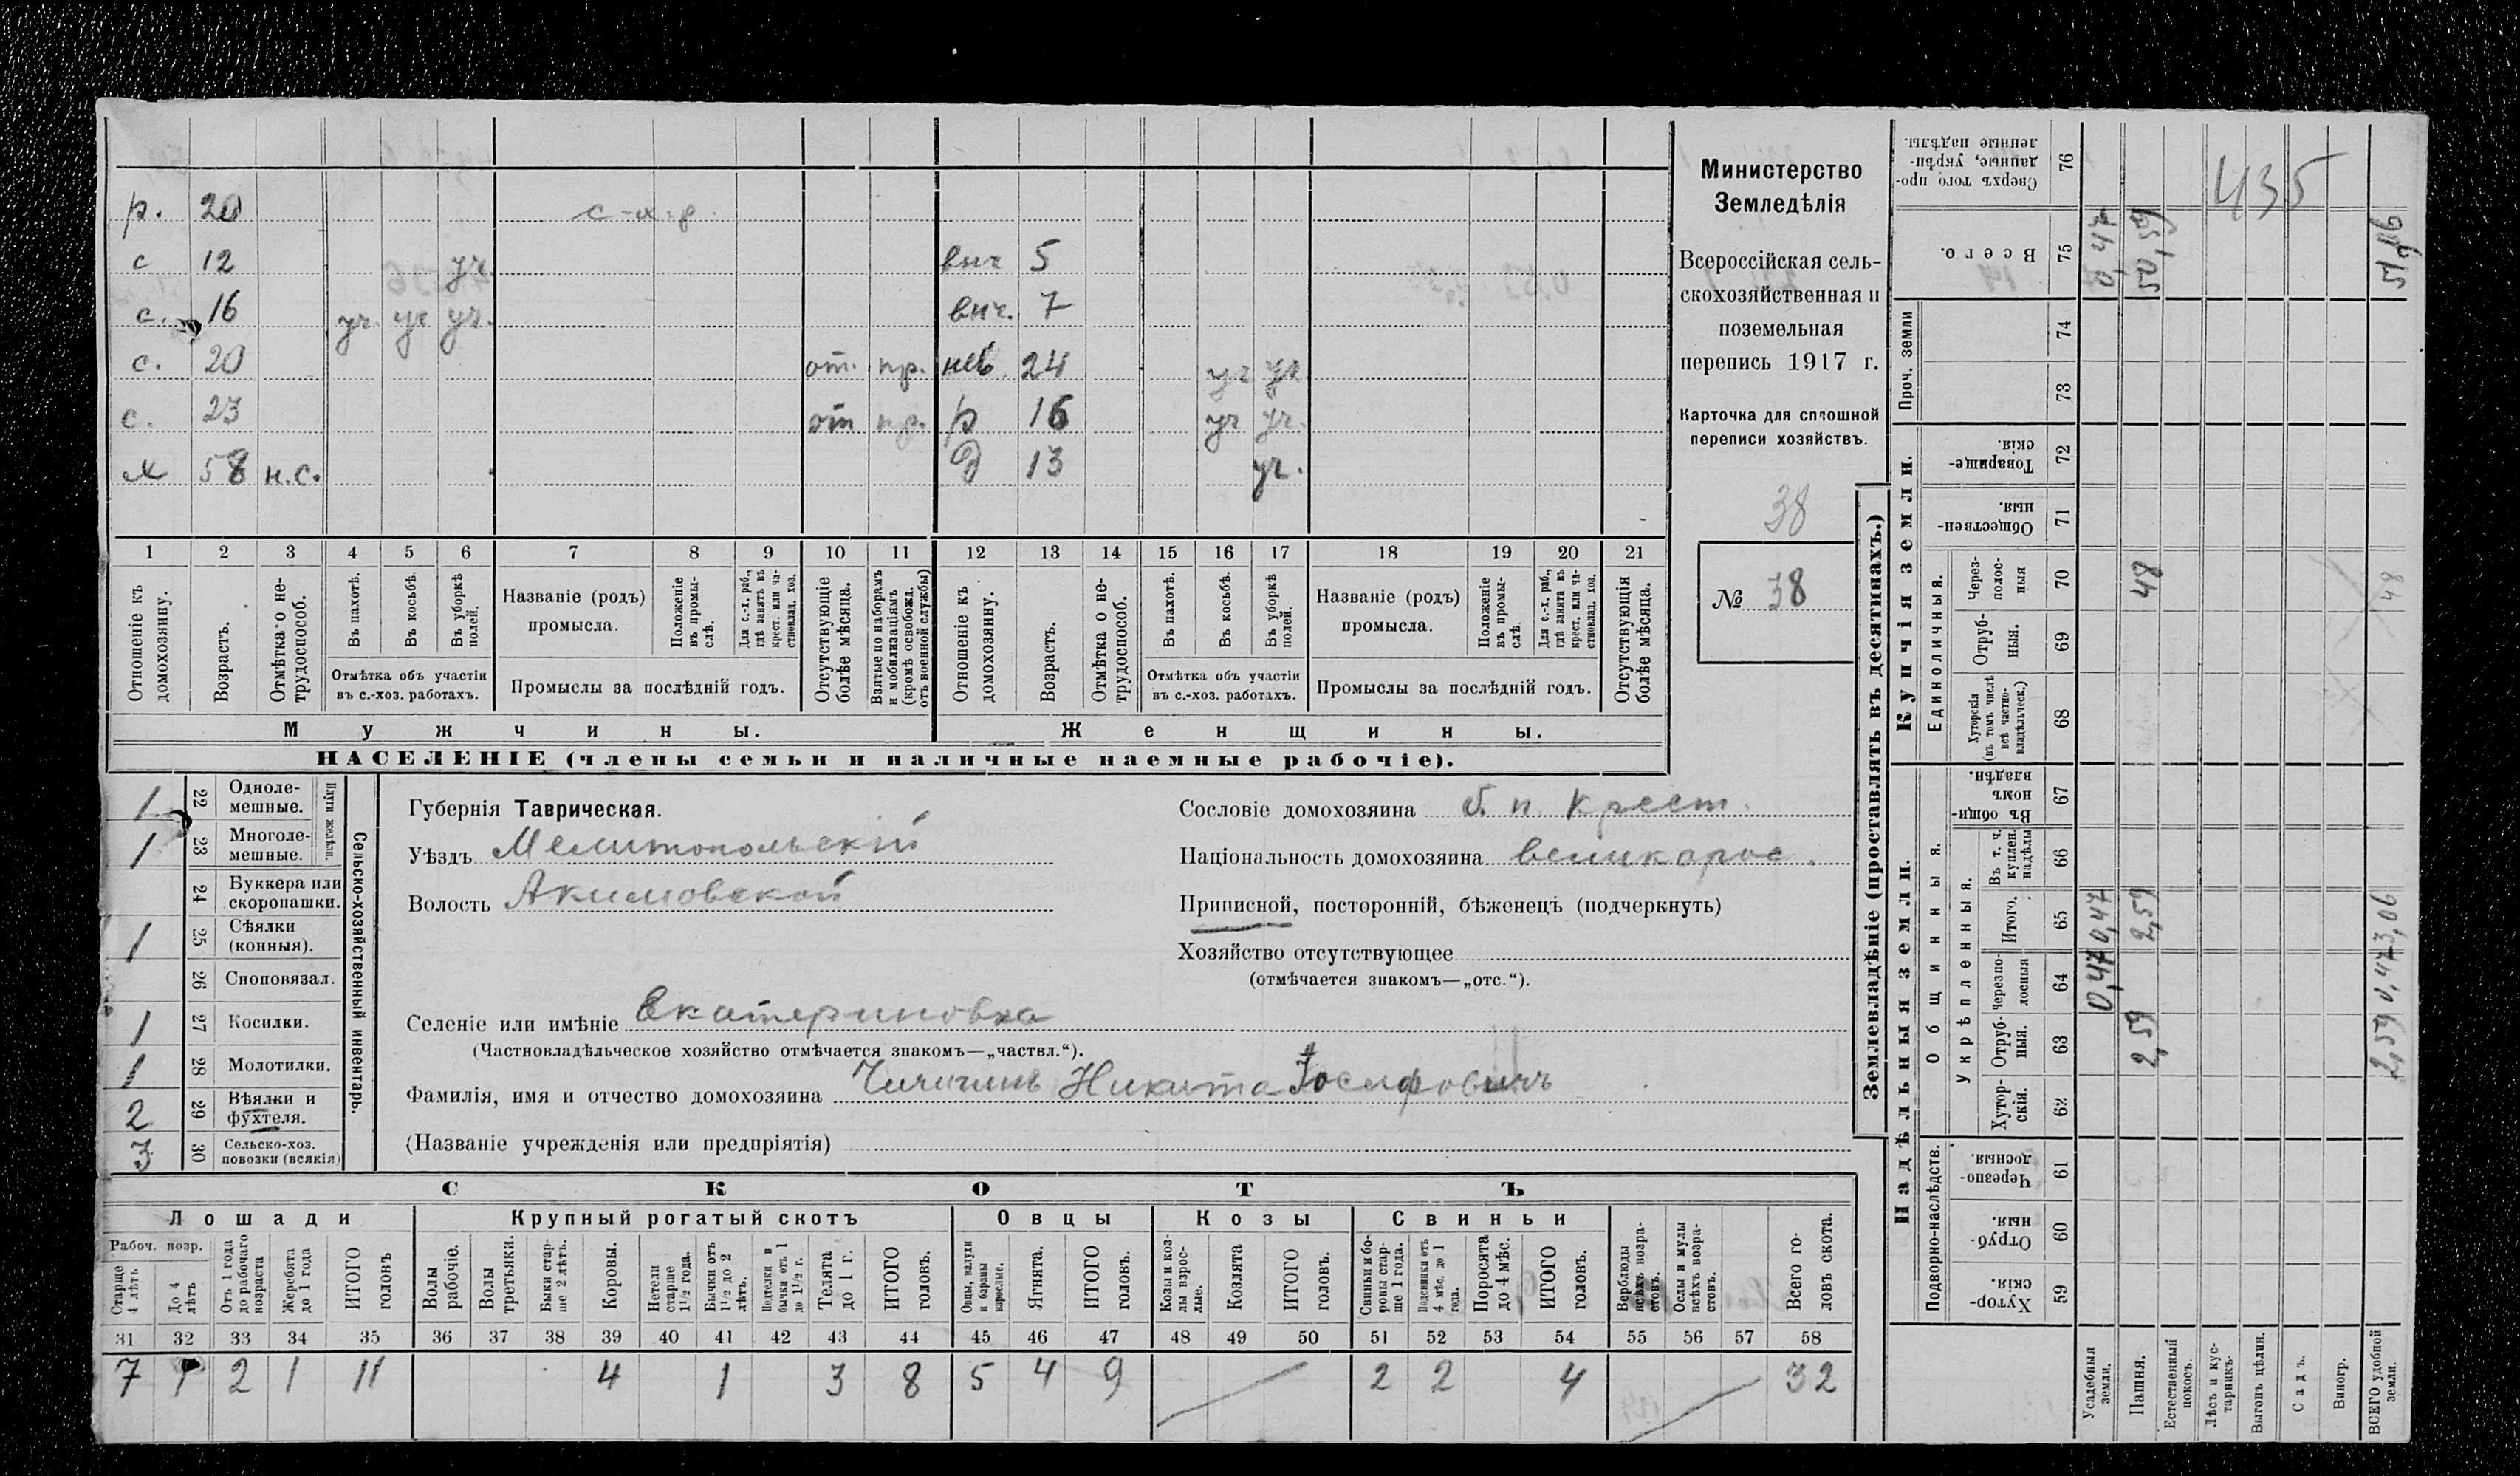 р. 20 с-х. р.
с 12 уч. внч 5
с. 16 уч. уч уч. внч. 7
с. 20 от. пр. нев. 24 уч уч
с. 23 от пр. р 16 уч уч.
х 58 н.с. д 13 уч.
1 2 3 4 5 6 7 8 9 10 11 12 13 14 15 16 17 18 19 20 21
Отношеніе къ домохозяину.
Возрастъ.
Отмѣтка о не-трудоспособ.
Въ пахотѣ.
Въ косьбѣ.
Въ уборкѣ полей.
Отмѣтка объ участіи
въ с.-хоз. работахъ.
Названіе (родъ)
промысла.
Положеніе въ промы-слѣ.
Для с.-х. раб., гдѣ занятъ въ крест. или ча-стновлад. хоз.
Промыслы за послѣдній годъ.
Отсутствующіе болѣе мѣсяца.
Взятые по наборамъ и мобилизаціямъ (кромѣ освобожд. отъ военной службы)
Отношеніе къ домохозяину.
Возрастъ.
Отмѣтка о не-трудоспособ.
Въ пахотѣ.
Въ косьбѣ.
Въ уборкѣ полей.
Отмѣтка объ участіи
въ с.-хоз. работахъ.
Названіе (родъ)
промысла.
Положеніе въ промы-слѣ.
Для с.-х. раб., гдѣ занята въ крест. или ча-стновлад. хоз.
Промыслы за послѣдній годъ.
Отсутствующія болѣе мѣсяца.
Мужчины. Женщины.
НАСЕЛЕНІЕ (члены семьи и наличные наемные рабочіе).
Министерство
Земледѣлія
Всероссійская сель-
скохозяйственная и
поземельная
перепись 1917 г.
Карточка для сплошной
переписи хозяйствъ.
38
№ 38
1 22 Однолемешные.
1 23 Многолемешные.
Плуги желѣзн.
24 Буккера или скоропашки.
1 25 Сѣялки (конныя).
26 Сноповязал.
1 27 Косилки.
1 28 Молотилки.
2 29 Вѣялки и фухтеля.
3 30 Сельско-хоз. повозки (всякія)
Сельско-хозяйственный инвентарь.
Губернія Таврическая.
Уѣздъ Мелитопольскій
Волость Акимовской
Сословіе домохозяина б. п. крест.
Національность домохозяина великорос.
Приписной, посторонній, бѣженецъ (подчеркнуть)
Хозяйство отсутствующее
(отмѣчается знакомъ—„отс.“).
Селеніе или имѣніе Екатериновка
(Частновладѣльческое хозяйство отмѣчается знакомъ—„частвл.“).
Фамилія, имя и отчество домохозяина Чичичинъ Никита Іосифовичъ
(Названіе учрежденія или предпріятія)
СКОТЪ
Лошади Крупный рогатый скотъ Овцы Козы Свиньи
Рабоч. возр.
Старше 4 лѣтъ
До 4 лѣтъ
Отъ 1 года до рабочаго возраста
Жеребята до 1 года
ИТОГО головъ
Волы рабочіе.
Волы третьяки.
Быки стар-ше 2 лѣтъ.
Коровы.
Нетели старше 1½ года.
Бычки отъ 1½ до 2 лѣтъ.
Подтелки и бычки отъ 1 до 1½ г.
Телята до 1 г.
ИТОГО головъ.
Овцы, валухи и бараны взрослые.
Ягнята.
ИТОГО головъ.
Козы и коз-лы взрос-лые.
Козлята
ИТОГО головъ.
Свиньи и бо-ровы стар-ше 1 года.
Подсвинки отъ 4 мѣс. до 1 года.
Поросята до 4 мѣс.
ИТОГО головъ.
Верблюды всѣхъ возра-стовъ.
Ослы и мулы всѣхъ возра-стовъ.
Всего го-ловъ скота.
31 32 33 34 35 36 37 38 39 40 41 42 43 44 45 46 47 48 49 50 51 52 53 54 55 56 57 58
7 1 2 1 11 4 1 3 8 5 4 9 2 2 4 32
Землевладѣніе (проставлять въ десятинахъ.)
Надѣльныя земли. Купчія земли. Проч. земли
Подворно-наслѣдств. Общинныя. Единоличныя.
Укрѣпленныя.
Хутор-скія. 59
Отруб-ныя. 60
Черезпо-лосныя. 61
Хутор-скія. 62
Отруб-ныя. 63
Черезпо-лосныя 64
Итого. 65
Въ т. ч. куплен. надѣлы 66
Въ общин-номъ владѣн. 67
Хуторскія (въ томъ числѣ всѣ частно-владѣльческ.) 68
Отруб-ныя. 69
Через-полос-ныя 70
Обществен-ныя. 71
Товарище-скія. 72
73
74
Всего. 75
Сверхъ того про-данные, укрѣп-ленные надѣлы. 76
Усадебныя земли. 0,47 0,47 0,47
Пашня. 2,59 2,59 48 50,59
Естественный покосъ.
Лѣсъ и кус-тарникъ.
Выгонъ цѣлин.
Садъ.
Виногр.
ВСЕГО удобной земли. 2,59 0,47 3,06 48 51,06
435